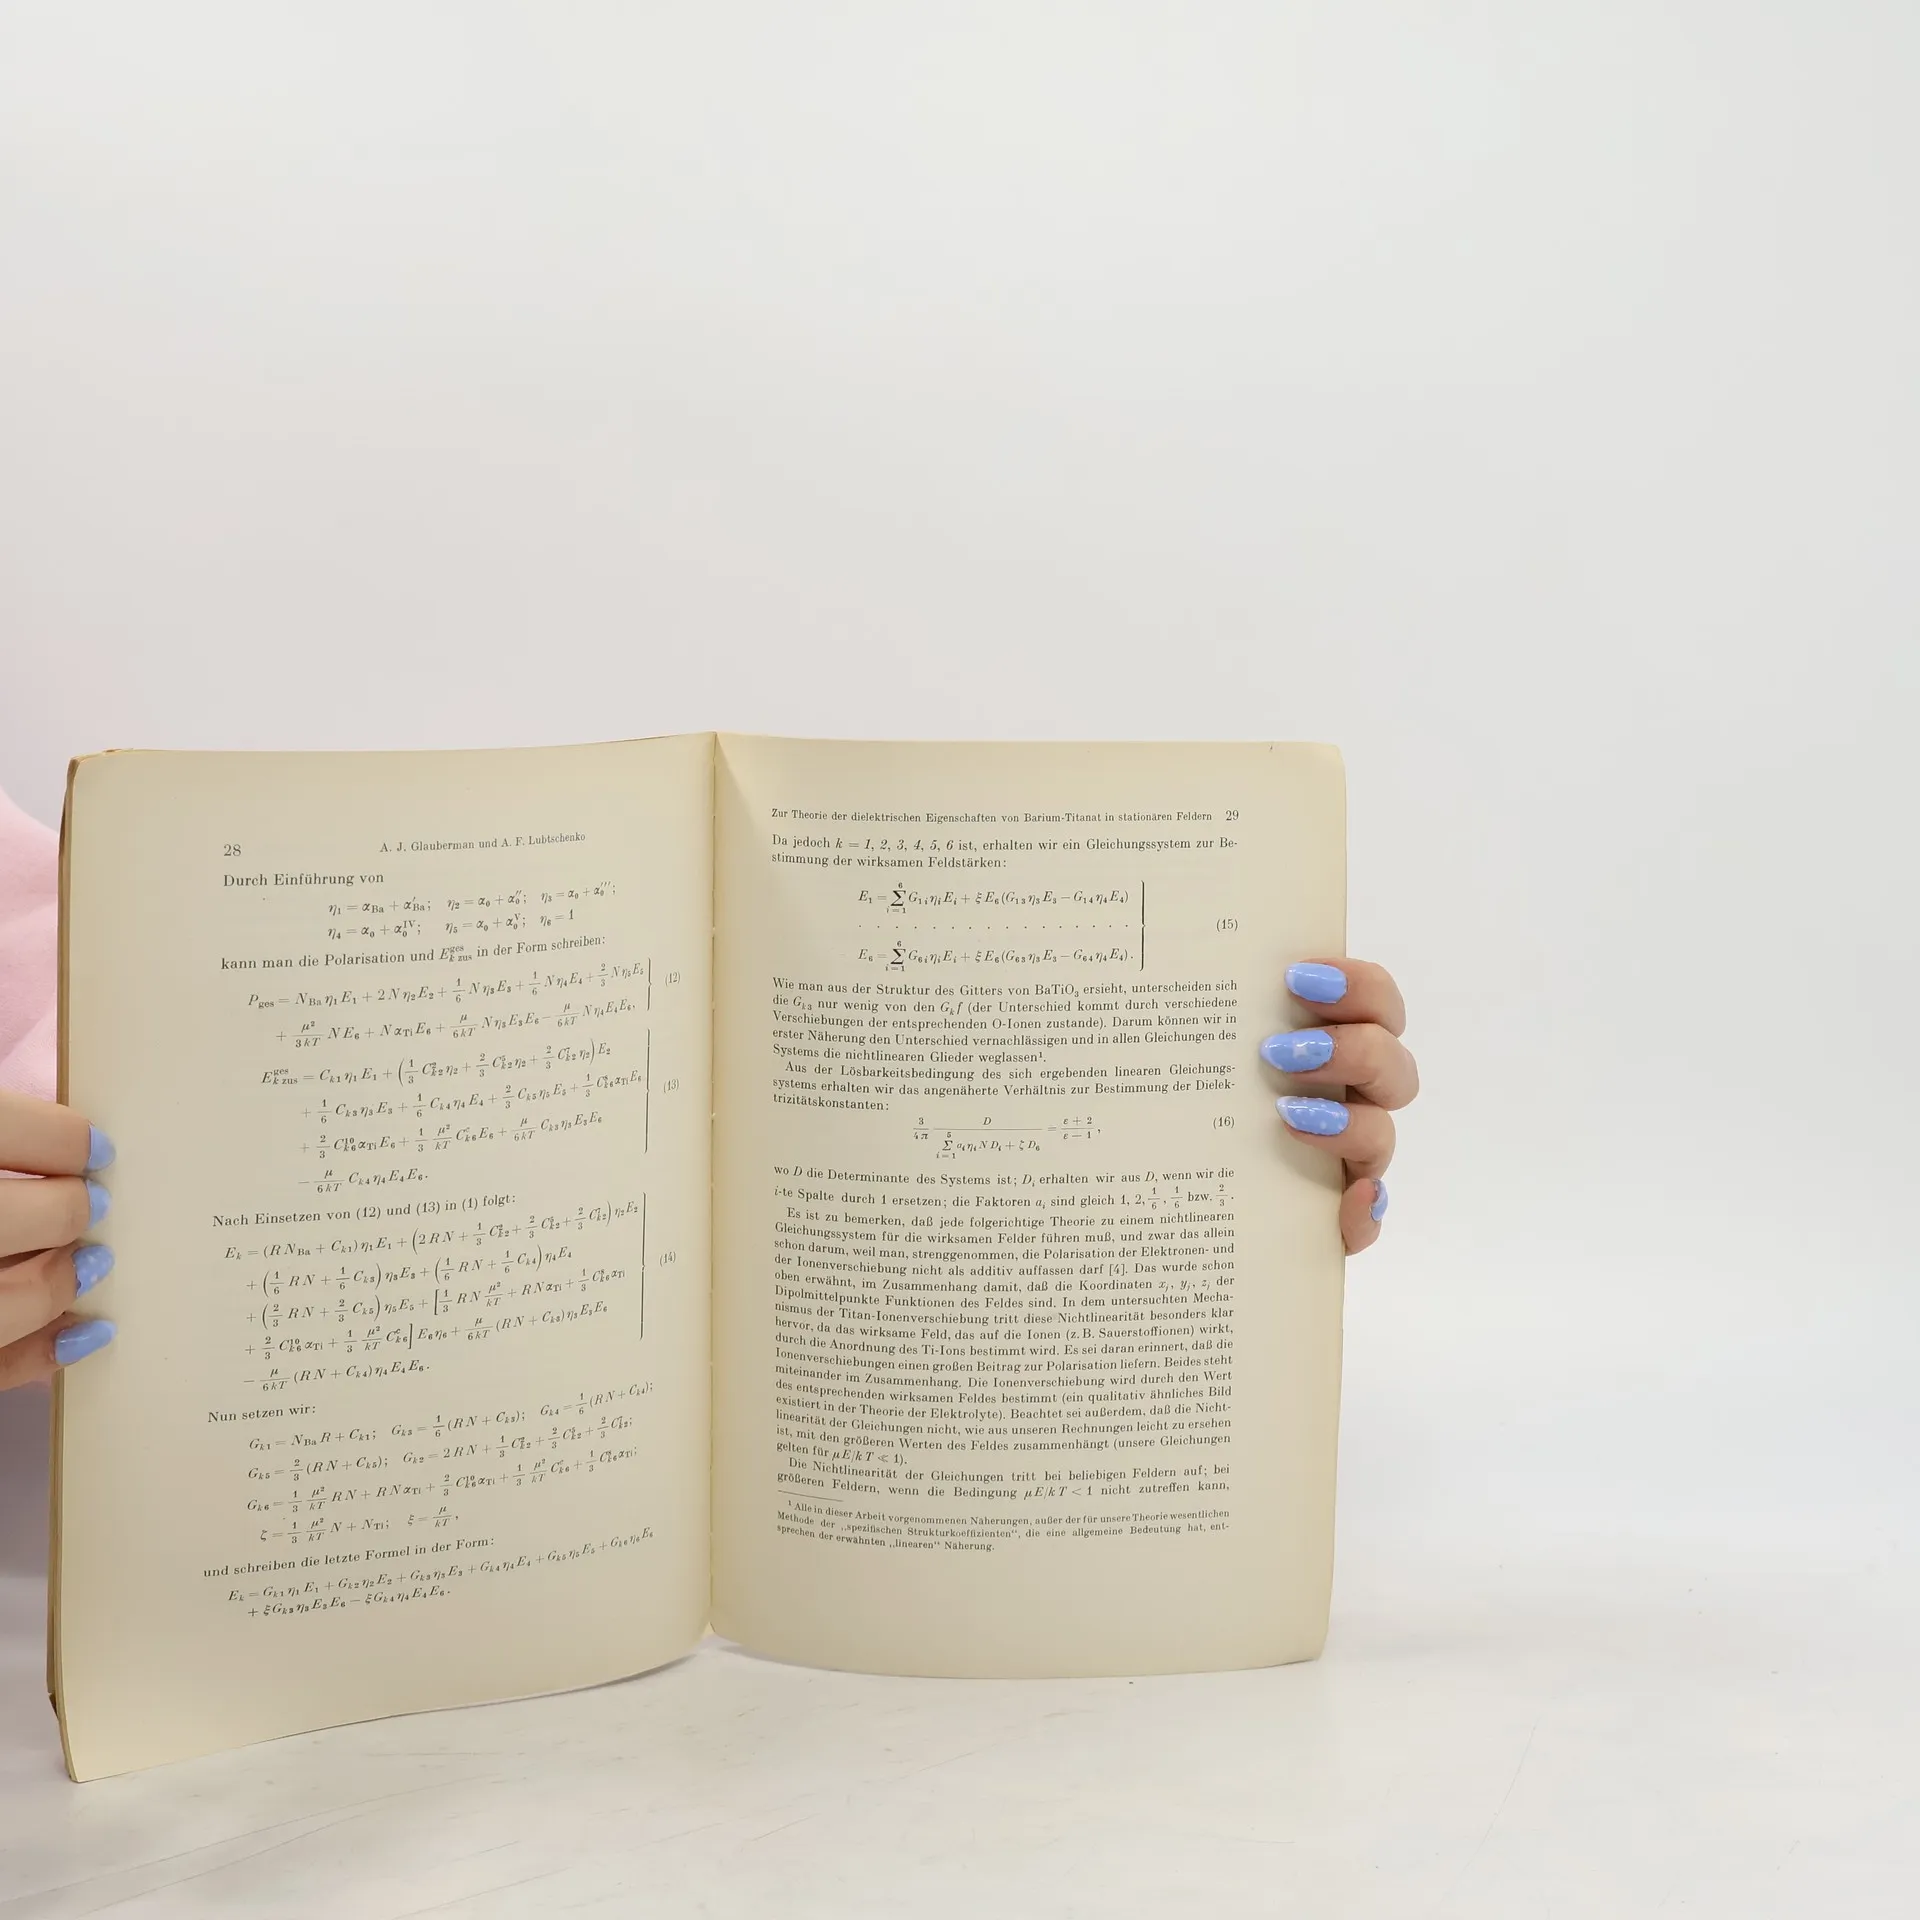 28 A. J. Glauberman und A. F. Lubtschenko
Durch Einführung von
η₁ = α_Ba + α′_Ba; η₂ = α₀ + α″₀; η₃ = α₀ + α‴₀;
η₄ = α₀ + α₀^IV; η₅ = α₀ + α₀^V; η₆ = 1
kann man die Polarisation und E_k zus^ges in der Form schreiben:
P_ges = N_Ba η₁ E₁ + 2 N η₂ E₂ + 1/6 N η₃ E₃ + 1/6 N η₄ E₄ + 2/3 N η₅ E₅
+ μ²/3kT N E₆ + N α_Ti E₆ + μ/6kT N η₃ E₃ E₆ − μ/6kT N η₄ E₄ E₆, (12)
E_k zus^ges = C_k1 η₁ E₁ + (1/3 C_k2^2 η₂ + 2/3 C_k2^5 η₂ + 2/3 C_k2^7 η₂) E₂
+ 1/6 C_k3 η₃ E₃ + 1/6 C_k4 η₄ E₄ + 2/3 C_k5 η₅ E₅ + 1/3 C_k6^8 α_Ti E₆ (13)
+ 2/3 C_k6^10 α_Ti E₆ + 1/3 μ²/kT C_k6^c E₆ + μ/6kT C_k3 η₃ E₃ E₆
− μ/6kT C_k4 η₄ E₄ E₆.
Nach Einsetzen von (12) und (13) in (1) folgt:
E_k = (R N_Ba + C_k1) η₁ E₁ + (2 R N + 1/3 C_k2^2 + 2/3 C_k2^5 + 2/3 C_k2^7) η₂ E₂
+ (1/6 R N + 1/6 C_k3) η₃ E₃ + (1/6 R N + 1/6 C_k4) η₄ E₄ (14)
+ (2/3 R N + 2/3 C_k5) η₅ E₅ + [1/3 R N μ²/kT + R N α_Ti + 1/3 C_k6^8 α_Ti
+ 2/3 C_k6^10 α_Ti + 1/3 μ²/kT C_k6^c] E₆ η₆ + μ/6kT (R N + C_k3) η₃ E₃ E₆
− μ/6kT (R N + C_k4) η₄ E₄ E₆.
Nun setzen wir:
G_k1 = N_Ba R + C_k1; G_k3 = 1/6 (R N + C_k3); G_k4 = 1/6 (R N + C_k4);
G_k5 = 2/3 (R N + C_k5); G_k2 = 2 R N + 1/3 C_k2^2 + 2/3 C_k2^5 + 2/3 C_k2^7;
G_k6 = 1/3 μ²/kT R N + R N α_Ti + 2/3 C_k6^10 α_Ti + 1/3 μ²/kT C_k6^c + 1/3 C_k6^8 α_Ti;
ζ = 1/3 μ²/kT N + N_Ti; ξ = μ/kT,
und schreiben die letzte Formel in der Form:
E_k = G_k1 η₁ E₁ + G_k2 η₂ E₂ + G_k3 η₃ E₃ + G_k4 η₄ E₄ + G_k5 η₅ E₅ + G_k6 η₆ E₆
+ ξ G_k3 η₃ E₃ E₆ − ξ G_k4 η₄ E₄ E₆.
Zur Theorie der dielektrischen Eigenschaften von Barium-Titanat in stationären Feldern 29
Da jedoch k = 1, 2, 3, 4, 5, 6 ist, erhalten wir ein Gleichungssystem zur Be-
stimmung der wirksamen Feldstärken:
E₁ = Σ_{i=1}^{6} G_1i η_i E_i + ξ E₆ (G₁₃ η₃ E₃ − G₁₄ η₄ E₄)
. . . . . . . . . . . . . . . (15)
E₆ = Σ_{i=1}^{6} G_6i η_i E_i + ξ E₆ (G₆₃ η₃ E₃ − G₆₄ η₄ E₄).
Wie man aus der Struktur des Gitters von BaTiO₃ ersieht, unterscheiden sich
die G_k3 nur wenig von den G_k f (der Unterschied kommt durch verschiedene
Verschiebungen der entsprechenden O-Ionen zustande). Darum können wir in
erster Näherung den Unterschied vernachlässigen und in allen Gleichungen des
Systems die nichtlinearen Glieder weglassen¹.
Aus der Lösbarkeitsbedingung des sich ergebenden linearen Gleichungs-
systems erhalten wir das angenäherte Verhältnis zur Bestimmung der Dielek-
trizitätskonstanten:
3/4π D/(Σ_{i=1}^{5} a_i η_i N D_i + ζ D₆) = (ε + 2)/(ε − 1), (16)
wo D die Determinante des Systems ist; D_i erhalten wir aus D, wenn wir die
i-te Spalte durch 1 ersetzen; die Faktoren a_i sind gleich 1, 2, 1/6, 1/6 bzw. 2/3.
Es ist zu bemerken, daß jede folgerichtige Theorie zu einem nichtlinearen
Gleichungssystem für die wirksamen Felder führen muß, und zwar das allein
schon darum, weil man, strenggenommen, die Polarisation der Elektronen- und
der Ionenverschiebung nicht als additiv auffassen darf [4]. Das wurde schon
oben erwähnt, im Zusammenhang damit, daß die Koordinaten x_j, y_j, z_j der
Dipolmittelpunkte Funktionen des Feldes sind. In dem untersuchten Mecha-
nismus der Titan-Ionenverschiebung tritt diese Nichtlinearität besonders klar
hervor, da das wirksame Feld, das auf die Ionen (z. B. Sauerstoffionen) wirkt,
durch die Anordnung des Ti-Ions bestimmt wird. Es sei daran erinnert, daß die
Ionenverschiebungen einen großen Beitrag zur Polarisation liefern. Beides steht
miteinander im Zusammenhang. Die Ionenverschiebung wird durch den Wert
des entsprechenden wirksamen Feldes bestimmt (ein qualitativ ähnliches Bild
existiert in der Theorie der Elektrolyte). Beachtet sei außerdem, daß die Nicht-
linearität der Gleichungen nicht, wie aus unseren Rechnungen leicht zu ersehen
ist, mit den größeren Werten des Feldes zusammenhängt (unsere Gleichungen
gelten für μE/kT ≪ 1).
Die Nichtlinearität der Gleichungen tritt bei beliebigen Feldern auf; bei
größeren Feldern, wenn die Bedingung μE/kT < 1 nicht zutreffen kann,
¹ Alle in dieser Arbeit vorgenommenen Näherungen, außer der für unsere Theorie wesentlichen
Methode der „spezifischen Strukturkoeffizienten“, die eine allgemeine Bedeutung hat, ent-
sprechen der erwähnten „linearen“ Näherung.